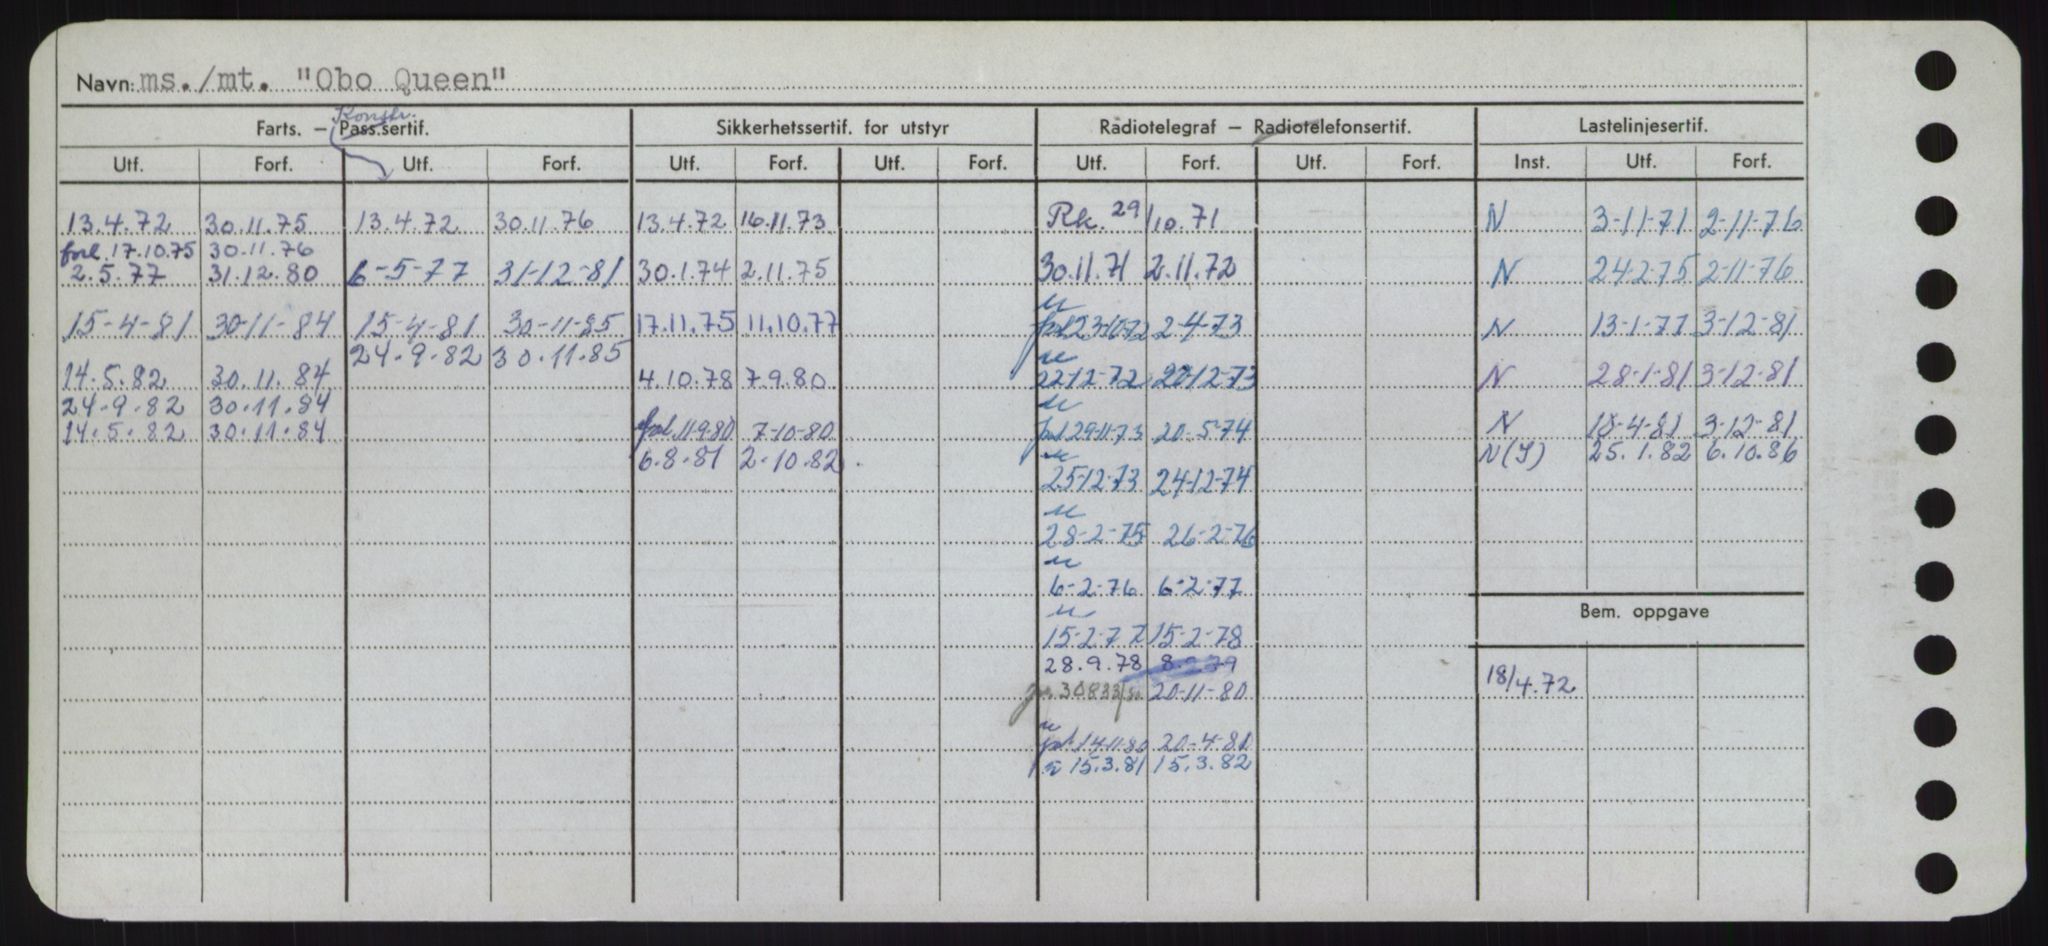 Navn: ms./mt. "Obo Queen"
Konstr.
Farts. — Pass.sertif. Sikkerhetssertif. for utstyr Radiotelegraf — Radiotelefonsertif. Lastelinjesertif.
Utf. Forf. Utf. Forf. Utf. Forf. Utf. Forf. Utf. Forf. Utf. Forf. Inst. Utf. Forf.
13.4.72 30.11.75 13.4.72 30.11.76 13.4.72 16.11.73 Rk. 29/10.71 N 3-11-71 2-11-76
forl. 17.10.75 30.11.76
2.5.77 31.12.80 6-5-77 31-12-81 30.1.74 2.11.75 30.11.71 2.11.72 N 24-2-75 2-11-76
15-4-81 30-11-84 15-4-81 30-11-85 17.11.75 11.10.77 23-10-72 2-4-73 N 13-1-77 3-12-81
24.9.82 30.11.85
14.5.82 30.11.84 4.10.78 7.9.80 22-12-72 20-12-73 N 28-1-81 3-12-81
24.9.82 30.11.84
14.5.82 30.11.84 forl. 11-9-80 7-10-80 29-11-73 20-5-74 N 18-4-81 3-12-81
6.8.81 2.10.82 N(I) 25.1.82 6.10.86
25-12-73 24-12-74
28-2-75 26-2-76
6-2-76 6-2-77
Bem. oppgave
15-2-77 15-2-78
28.9.78 8.2.79
18/4.72
20-11-80
14-11-80 20-4-81
15.3.81 15.3.82